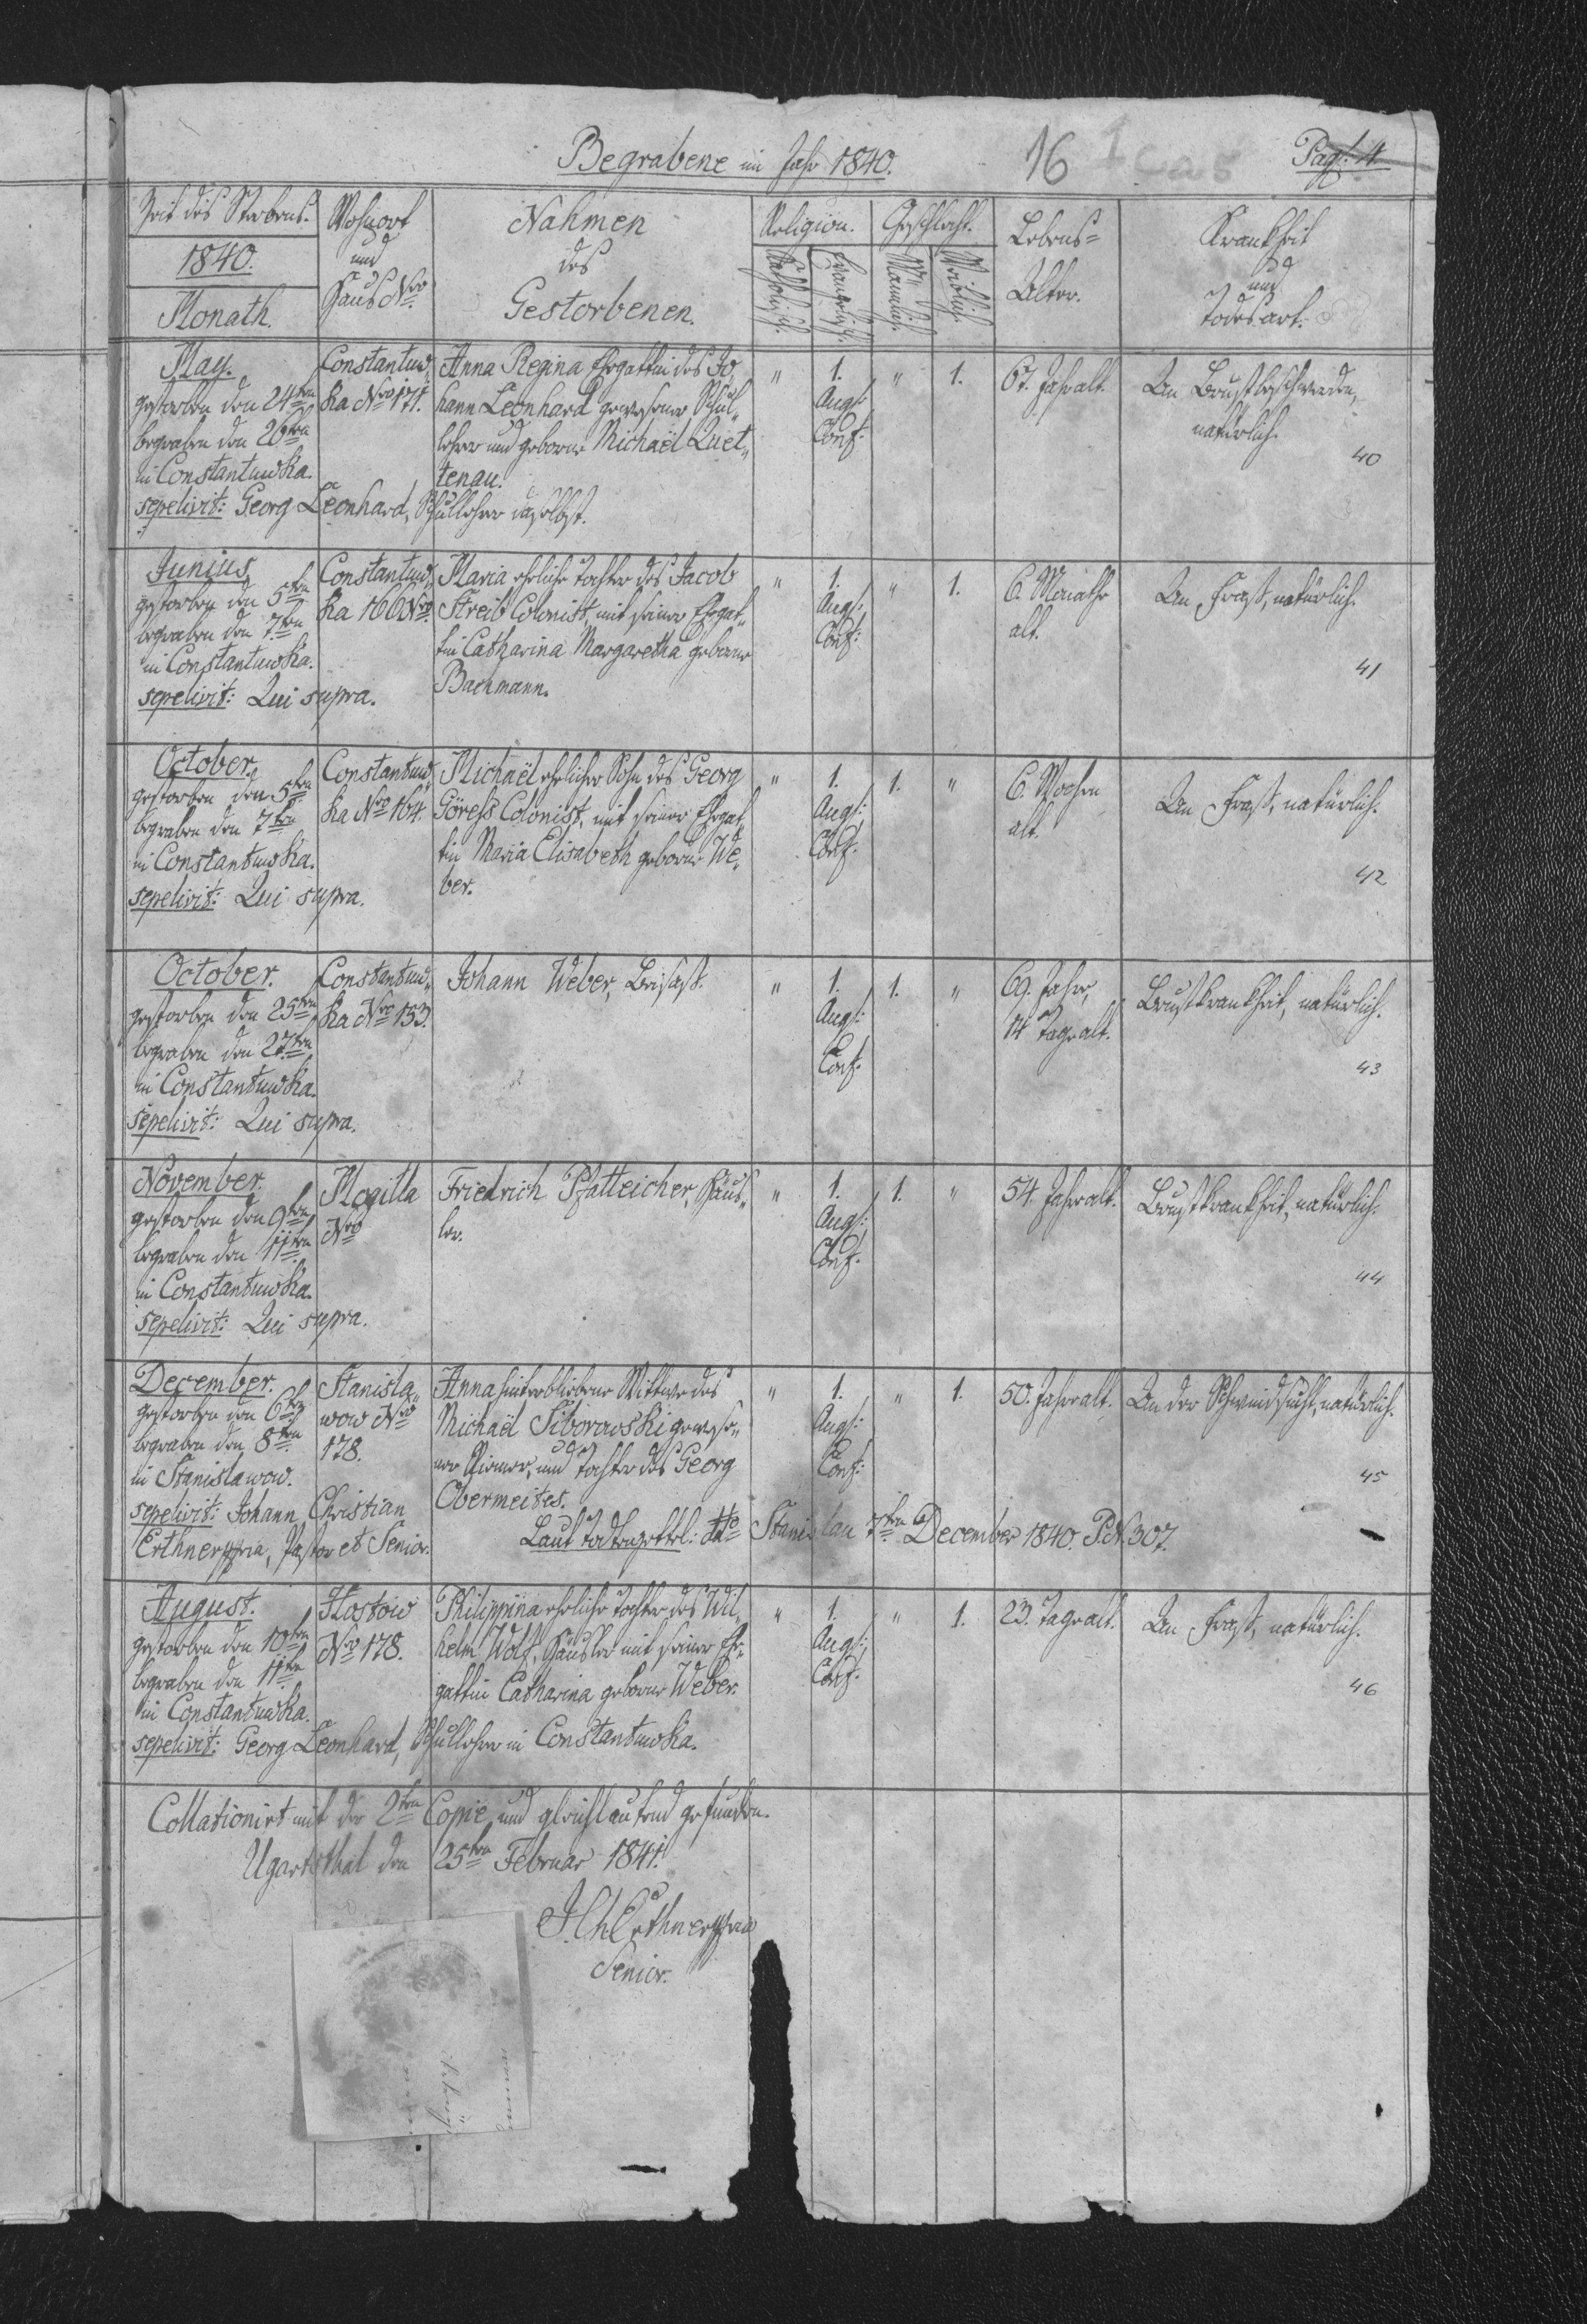 Begrabene im Jahr 1840.
16
Pag: 4.
Zeit des Sterbens.
1840.
Monath.
Wohnort
und
Haus Nro
Nahmen
des
Gestorbenen.
Religion.
Katholisch.
Evangelisch.
Geschlecht.
Männlich.
Weiblich.
Lebens=
Alter.
Krankheit
und
Todesart.
May.
gestorben den 24ten
begraben den 26ten
in Constantuwka.
sepelivit: Georg Leonhard, Schullehrer daselbst.
Constantuw„
ka Nro 171.
Anna Regina Ehegattin des Jo„
hann Leonhard gewesener Schul„
lehrer und geborne Michaël Quet„
tenau.
"
1.
Augs:
Conf:
"
1.
67. Jahr alt.
An Brustbeschwerden,
natürlich.
40
Junius
gestorben den 5ten
begraben den 7ten
in Constantuwka.
sepelivit: Qui supra.
Constantuw„
ka 160 Nro
Maria eheliche Tochter des Jacob
Streib Colonist, mit seiner Ehegat„
tin Catharina Margaretha geborne
Bachmann.
"
1.
Augs:
Conf:
"
1.
6. Monathe
alt.
An Fraß, natürlich.
41
October.
gestorben den 5ten
begraben den 7ten
in Constantuwka.
sepelivit: Qui supra.
Constantuw„
ka Nro 164.
Michaël ehelicher Sohn des Georg
Göreß Colonist, mit seiner Ehegat„
tin Maria Elisabeth geborne We„
ber.
"
1.
Augs:
Conf:
1.
"
6. Wochen
alt.
An Fraß, natürlich.
42
October.
gestorben den 25ten
begraben den 27ten
in Constantuwka.
sepelivit: Qui supra.
Constantuw„
ka Nro 153.
Johann Weber, Beisaß.
"
1.
Augs:
Conf:
1.
"
69. Jahre,
14 Tage alt.
Brustkrankheit, natürlich.
43
November.
gestorben den 9ten
begraben den 11ten
in Constantuwka.
sepelivit: Qui supra.
Mogilla
Nro
Friedrich Pfatteicher, Häus„
ler.
"
1.
Augs:
Conf:
1.
"
54. Jahr alt.
Brustkrankheit, natürlich.
44
December.
gestorben den 6ten
begraben den 8ten
in Stanislawow.
sepelivit: Johann Christian
Erthner, Pastor et Senior.
Stanisla„
wow Nro
178.
Anna hinterbliebene Wittwe des
Michaël Siborowski gewese„
ner Riemer, und Tochter des Georg
Obermeites.
Laut Todtenzettel: dto Stanislau 7ten December 1840. P.N. 307.
"
1.
Augs:
Conf:
"
1.
50. Jahr alt.
An der Schwindsucht, natürlich.
45
August.
gestorben den 10ten
begraben den 11ten
in Constantuwka.
sepelivit: Georg Leonhard, Schullehrer in Constantuwka.
Hostow
Nro 178.
Philippina eheliche Tochter des Wil„
helm Wolf, Häusler mit seiner Ehe„
gattin Catharina geborne Weber.
"
1.
Augs:
Conf:
"
1.
23. Tage alt.
An Fraß, natürlich.
46
Collationirt mit der 2ten Copie und gleichlautend gefunden.
Ugartsthal den 25ten Februar 1841.
J. Ch. Erthner
Senior.